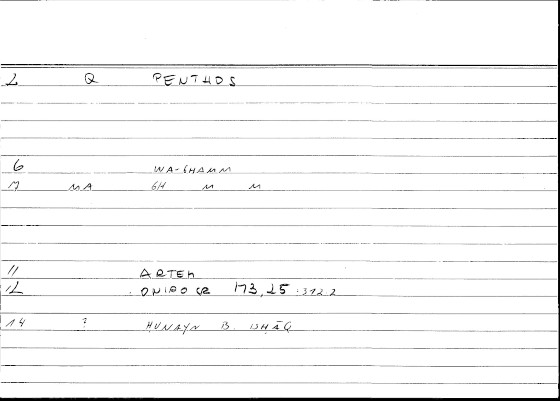 2 Q PENTHOS
6 WA-GHAMM
7 MA GH M M
11 ARTEM
12 ONIROCR 173,25 :312.2
14 ? HUNAYN B. ISHĀQ